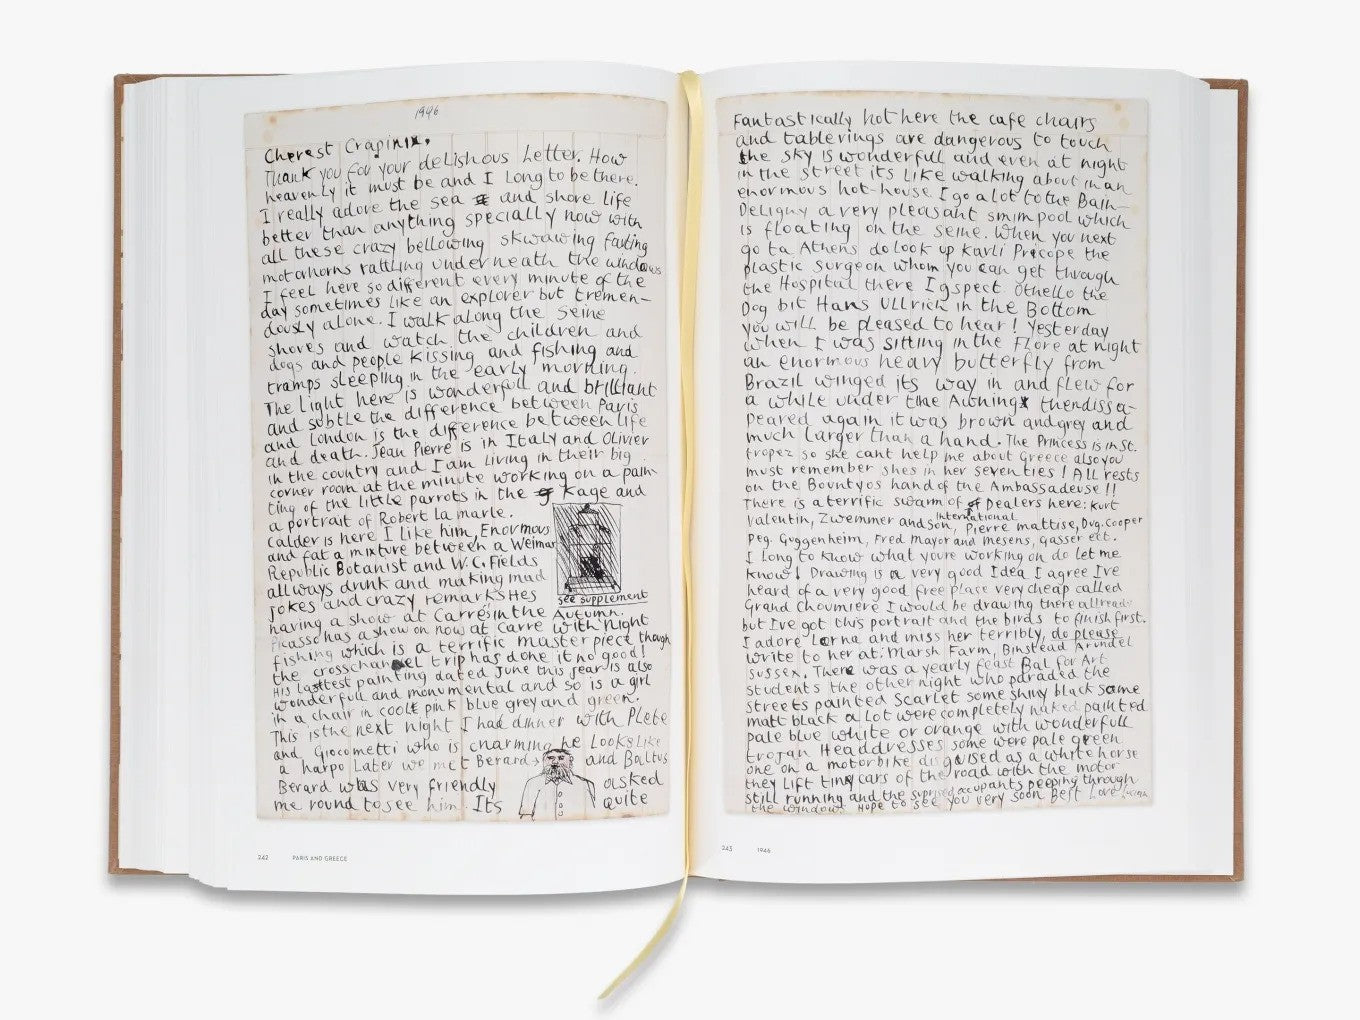 1946
Cherest Crapinix,
Thank you for your deLishous Letter. How
heavenly it must be and I long to be there.
I really adore the sea and shore life
better than anything specially now with
all these crazy bellowing skwawing farting
motorhorns rattling underneath the windows
I feel here so different every minute of the
day sometimes like an explorer but tremen-
dously alone. I walk along the Seine
shores and watch the children and
dogs and people kissing and fishing and
tramps sleeping in the early morning.
The Light here is wonderfull and brilliant
and subtle the difference between Paris
and London is the difference between life
and death. Jean Pierre is in Italy and Olivier
in the country and I am living in their big
corner room at the minute working on a pain-
ting of the little parrots in the Kage and
a portrait of Robert La marle.
Calder is here I like him, Enormous
and fat a mixture between a Weimar
Republic Botanist and W.C. Fields
allways drunk and making mad
jokes and crazy remarks Hes
see supplement
having a show at Carre's in the Autumn.
Picasso has a show on now at Carre with Night
fishing which is a terrific masterpiece though
the crosschannel trip has done it no good!
His lattest painting dated June this year is also
wonderfull and monumental and so is a girl
in a chair in coolt pink blue grey and green.
This is the next night I had dinner with Plete
and Giocometti who is charming he Looks like
a harpo Later we met Berard → and Baltus
Berard was very friendly asked
me round to see him. Its quite
242 PARIS AND GREECE
Fantastically hot here the cafe chairs
and tablerings are dangerous to touch
the sky is wonderfull and even at night
in the street its Like walking about in an
enormous hot-house. I go a lot to the Bain-
Deligny a very pleasant swimpool which
is floating on the Seine. When you next
go to Athens do look up Karli Precope the
plastic surgeon whom you can get through
the Hospital there I gspect Othello the
Dog bit Hans Ullrich in the Bottom
you will be pleased to hear! Yesterday
when I was sitting in the Flore at night
an enormous heavy butterfly from
Brazil winged its way in and flew for
a while under the Awning then dissa-
peared again it was brown and grey and
much larger than a hand. The Princess is in St.
tropez so she cant help me about Greece also you
must remember shes in her seventies! ALL rests
on the Bountyos hand of the Ambassadeuse!!
There is a terrific swarm of Dealers here: Kurt
International
Valentin, Zwemmer and son, Pierre mattise, Dug. Cooper
Peg. Guggenheim, Fred Mayor and Mesens, Gasser ett.
I Long to know what youre working on do let me
know! Drawing is a very good Idea I agree I've
heard of a very good free place very cheap called
Grand Choumiere I would be drawing there allready
but I've got this portrait and the birds to finish first.
I adore Lorna and miss her terribly, do please
write to her at: Marsh Farm, Binstead Arundel
Sussex. There was a yearly feast Bal for Art
students the other night who paraded the
streets painted Scarlet some shiny black some
matt black a lot were completely naked painted
pale blue white or orange with wonderfull
trojan Headdresses some were pale green
one on a motorbike disguised as a white horse
they Lift tiny cars of the road with the motor
still running and the suprised occupants peeping through
the windows Hope to see you very soon Best Love
243 1946